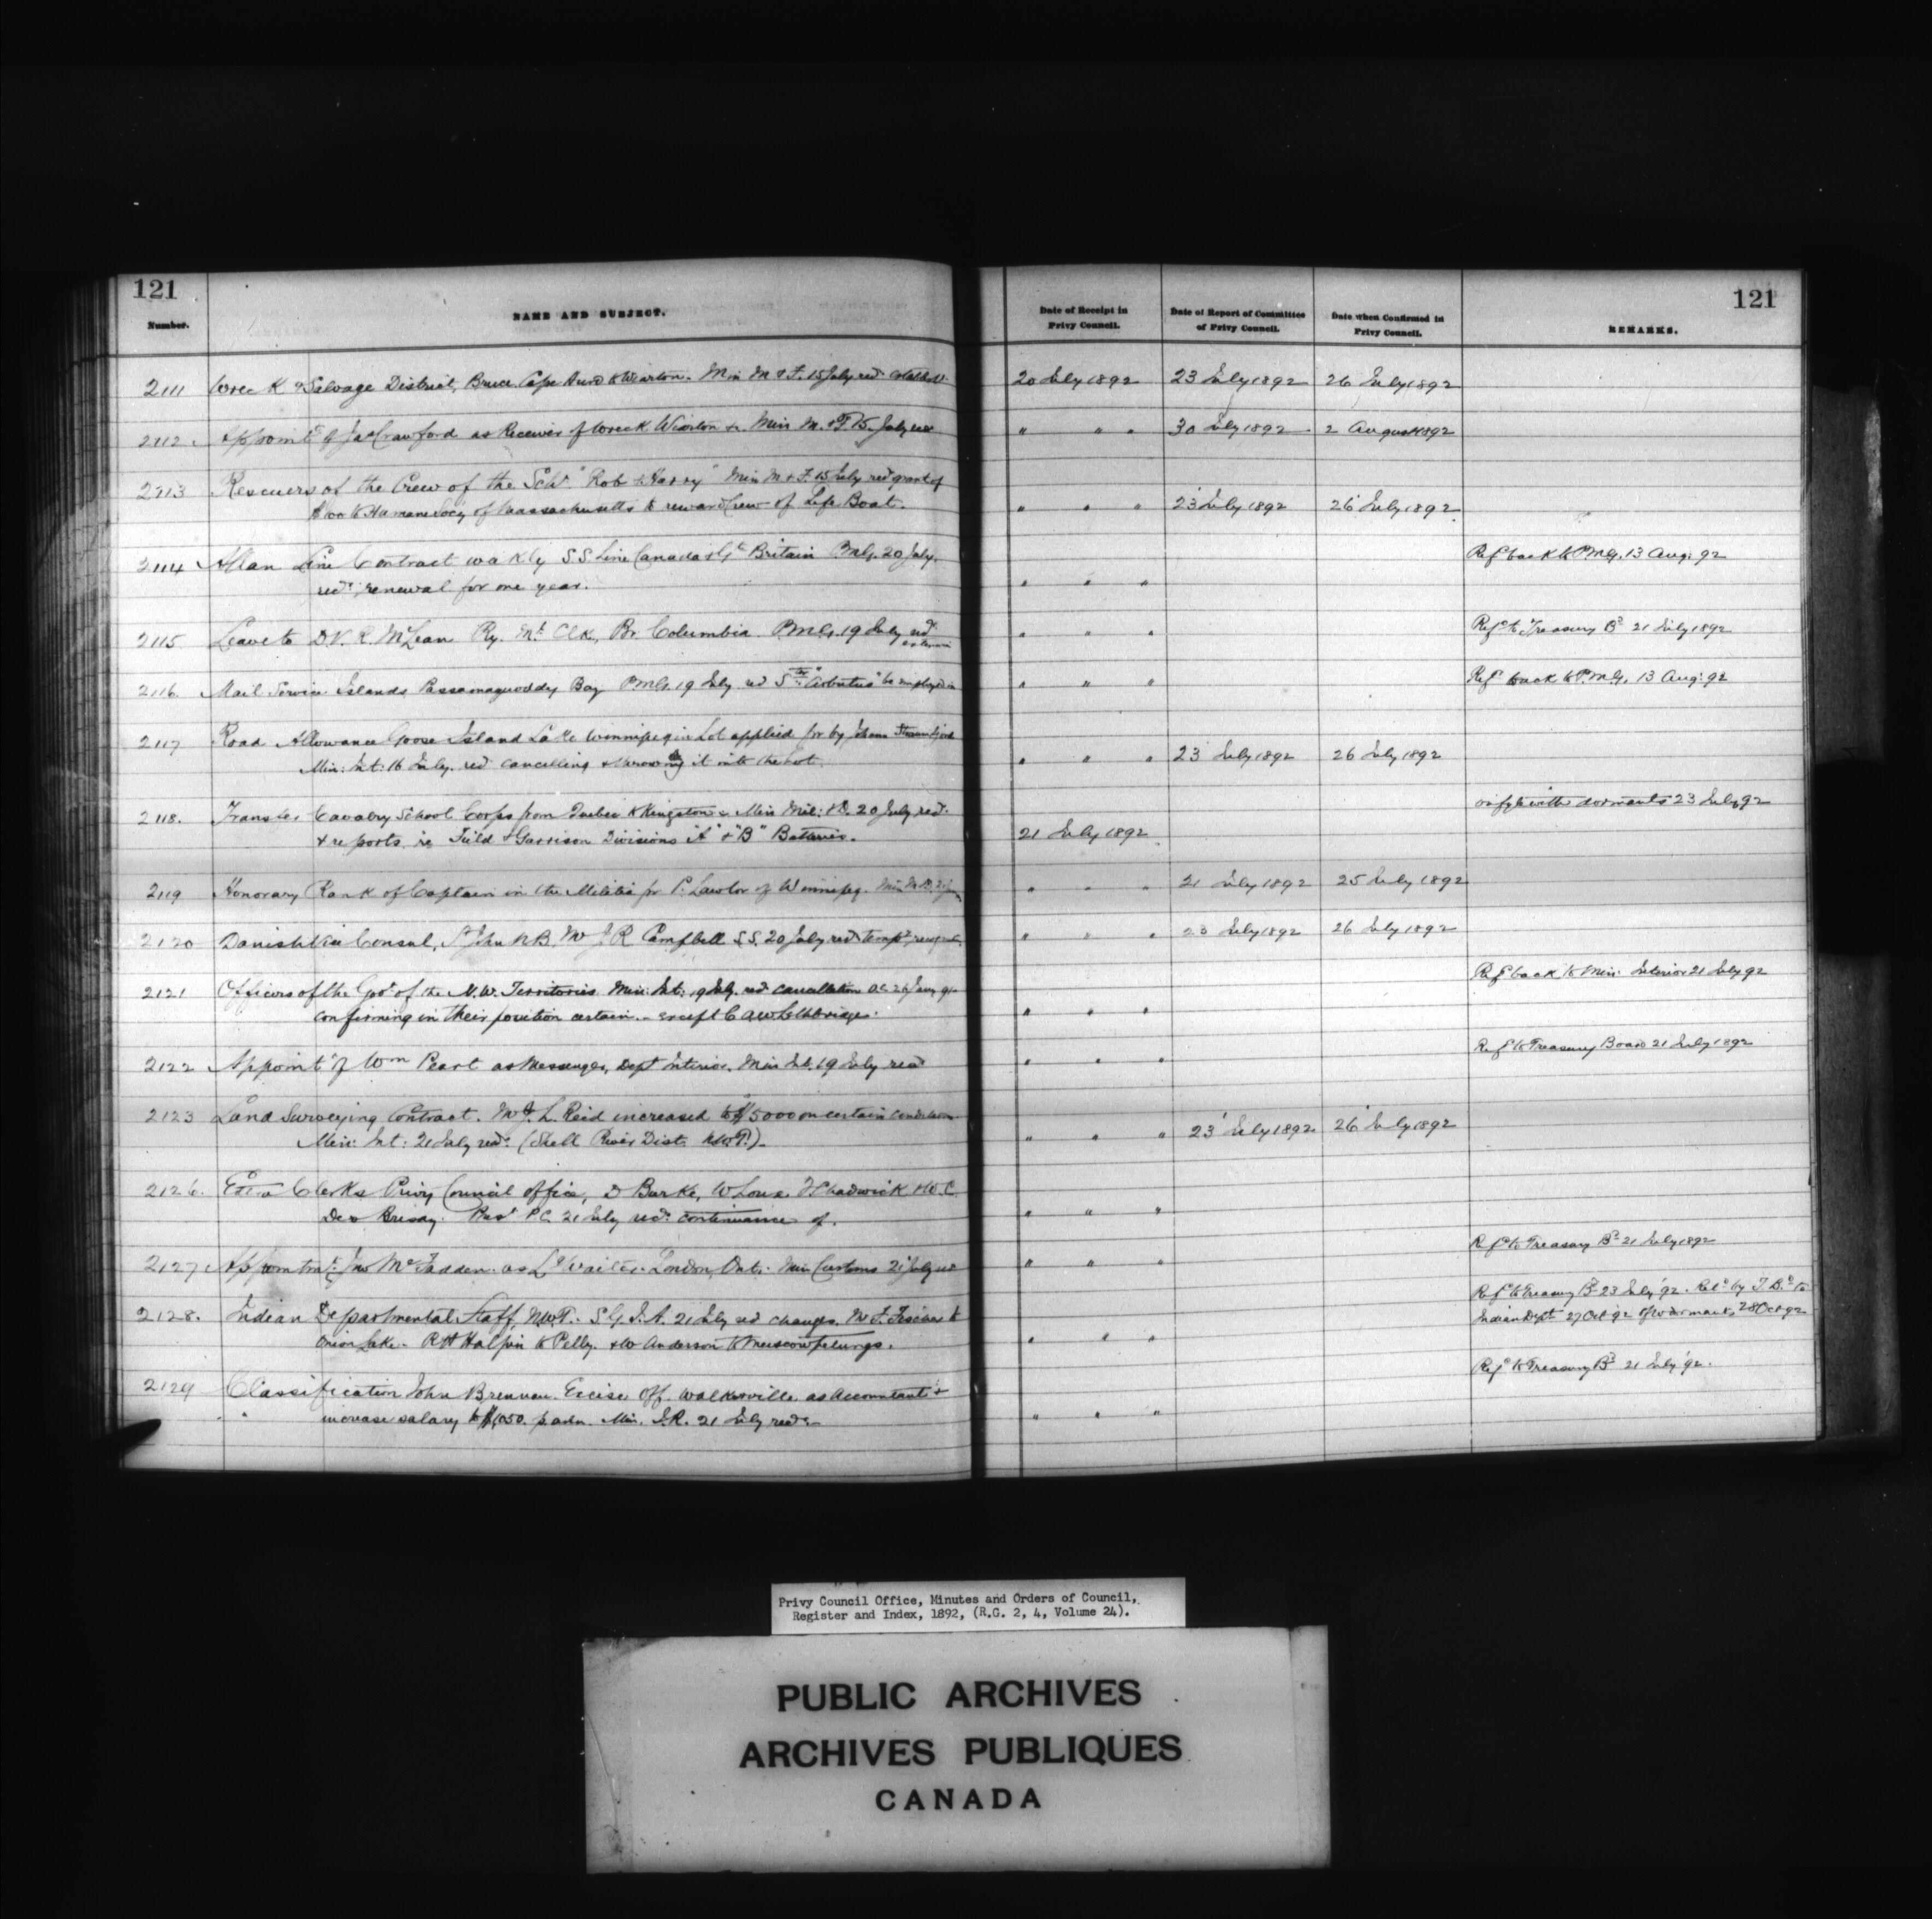 121
Number.
NAME AND SUBJECT.
Date of Receipt in
Privy Council.
Date of Report of Committee
of Privy Council.
Date when Confirmed in
Privy Council.
REMARKS.
121
2111 Wreck & Salvage District, Bruce Cape Hurd to Wiarton. Min M & F. 15 July red 20 July 1892 23 July 1892 26 July 1892
2112 Appoint^t of Jas Crawford as Receiver of Wreck Wiarton &c. Min M. & F 15 July red " " " 30 July 1892 2 August 1892
2113 Rescuers of the Crew of the Sch^r "Rob & Harry" Min M & F. 15 July red grant of
$100 to Humane Socy of Massachusetts to reward Crew of Life Boat. " " " 23 July 1892 26 July 1892
2114 Allan Line Contract wakly S.S. Line Canada & G^t Britain PMG. 20 July. Ref^d back to PMG. 13 Aug: 92
red^g renewal for one year. " " "
2115 Leave to D.V.R. McLean Ry. M^l Clk, Br. Columbia. PMG. 19 July red " " " Ref^d to Treasury B^d 21 July 1892
2116 Mail Service Islands Passamaquoddy Bay PMG. 19 July red S^tr "Arbutus" be employed in " " " Ref^d back to P.M.G. 13 Aug: 92
2117 Road Allowance Goose Island Lake Winnipeg in Lot applied for by Johann
Min: Int: 16 July. red cancelling & throwing it into the Lot. " " " 23 July 1892 26 July 1892
2118. Transfer Cavalry School Corps from Quebec to Kingston &c Min Mil: & D. 20 July red. on fyle with dormants 23 July 92
& reports re Field & Garrison Divisions "A" & "B" Batteries. 21 July 1892
2119 Honorary Rank of Captain in the Militia for P. Lawlor of Winnipeg. Min M.D. " " " 21 July 1892 25 July 1892
2120 Danish Vice Consul, St John N.B. Mr J R Campbell S.S. 20 July red temp^y " " " 23 July 1892 26 July 1892
2121 Officers of the Gov^t of the N.W. Territories Min: Int: 19 July. red cancellation O.C. 26 Jany 91 Ref^d back to Min: Interior 21 July 92
confirming in their position certain. - except C A W Lethbridge. " " "
2122 Appoint^t of Wm Peart as Messenger, Dept Interior. Min Int. 19 July red " " " Ref^d to Treasury Board 21 July 1892
2123 Land Surveying Contract. Mr J. L. Reid increased to $5000 on certain conditions
Min: Int: 21 July red. (Shell River Dist. N.W.T.) " " " 23 July 1892 26 July 1892
2126. Extra Clerks Privy Council Office, D Burke, W Lowe F Chadwick & W.C.
Des Brisay. Pres^t P.C. 21 July red. continuance of. " " "
2127 Appointm^t Jno McFadden as L^g Waiter London, Ont. Min Customs 21 July red " " " Ref^d to Treasury B^d 21 July 1892
2128. Indian Departmental Staff, N.W.T. S.G.I.A. 21 July red changes. Mr F. Fischer to Ref^d to Treasury B^d 23 July '92. Ret^d by T.B^d to
Onion Lake - R H Halpin to Pelly. & W Anderson to Muscowpetungs. " " " Indian Dept 27 Oct 92 28 Oct 92
2129 Classification John Brennan Excise Off. Walkerville as Accountant & Ref^d to Treasury B^d 21 July '92.
increase salary to $1,050. p ann. Min. I.R. 21 July red. " " "
Privy Council Office, Minutes and Orders of Council,
Register and Index, 1892, (R.G. 2, 4, Volume 24).
PUBLIC ARCHIVES
ARCHIVES PUBLIQUES
CANADA